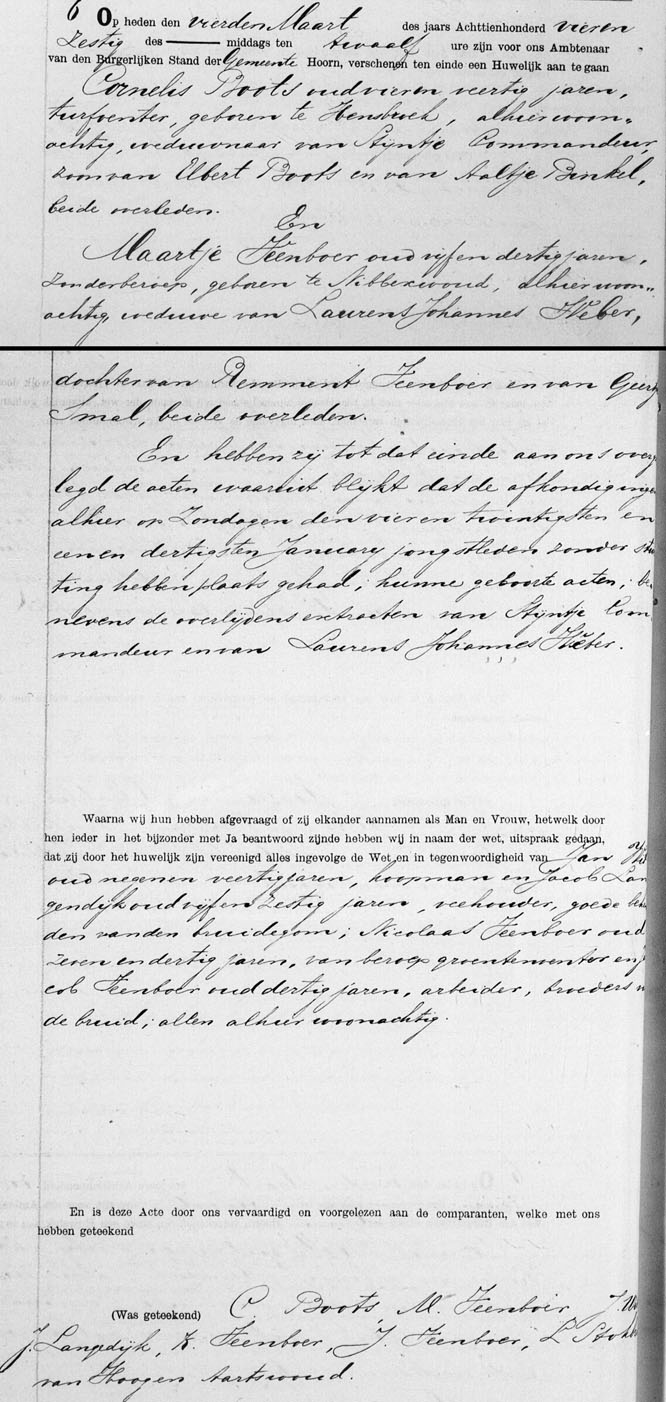 6 Op heden den vierden Maart des jaars Achttienhonderd vier en
Zestig des middags ten twaalf ure zijn voor ons Ambtenaar
van den Burgerlijken Stand der Gemeente Hoorn, verschenen ten einde een Huwelijk aan te gaan
Cornelis Boots oud vier en veertig jaren,
turfventer, geboren te Hensbroek, alhier woon=
achtig, weduwnaar van Stijntje Commandeur,
zoon van Elbert Boots en van Aaltje Binkel,
beide overleden.
En
Maartje Feenboer oud vijf en dertig jaren,
Zonder beroep, geboren te Nibbixwoud, alhier woon=
achtig, weduwe van Laurens Johannes Weber,
dochter van Remment Feenboer en van Geer
Smal, beide overleden.
En hebben zij tot dat einde aan ons over
legd de acten waaruit blijkt dat de afkondigingen
alhier op Zondagen den vier en twintigsten en
een en dertigsten January jongstleden zonder stui
ting hebben plaats gehad; hunne geboorte acten; be
nevens de overlijdens extracten van Stijntje Com
mandeur en van Laurens Johannes Weber.
Waarna wij hun hebben afgevraagd of zij elkander aannamen als Man en Vrouw, hetwelk door
hen ieder in het bijzonder met Ja beantwoord zijnde hebben wij in naam der wet, uitspraak gedaan,
dat zij door het huwelijk zijn vereenigd alles ingevolge de Wet en in tegenwoordigheid van Jan
oud negen en veertig jaren, koopman en Jacob Lan
gendijk oud vijf en Zestig jaren, veehouder, goede beken
den van den bruidegom; Nicolaas Feenboer oud
zeven en dertig jaren, van beroep groentenventer en J
cob Feenboer oud dertig jaren, arbeider, broeders v
de bruid; allen alhier woonachtig.
En is deze Acte door ons vervaardigd en voorgelezen aan de comparanten, welke met ons
hebben geteekend
(Was geteekend) C Boots, M. Feenboer
J. Langdijk, K. Feenboer, J. Feenboer, L
van Hoogen Aartswoud.